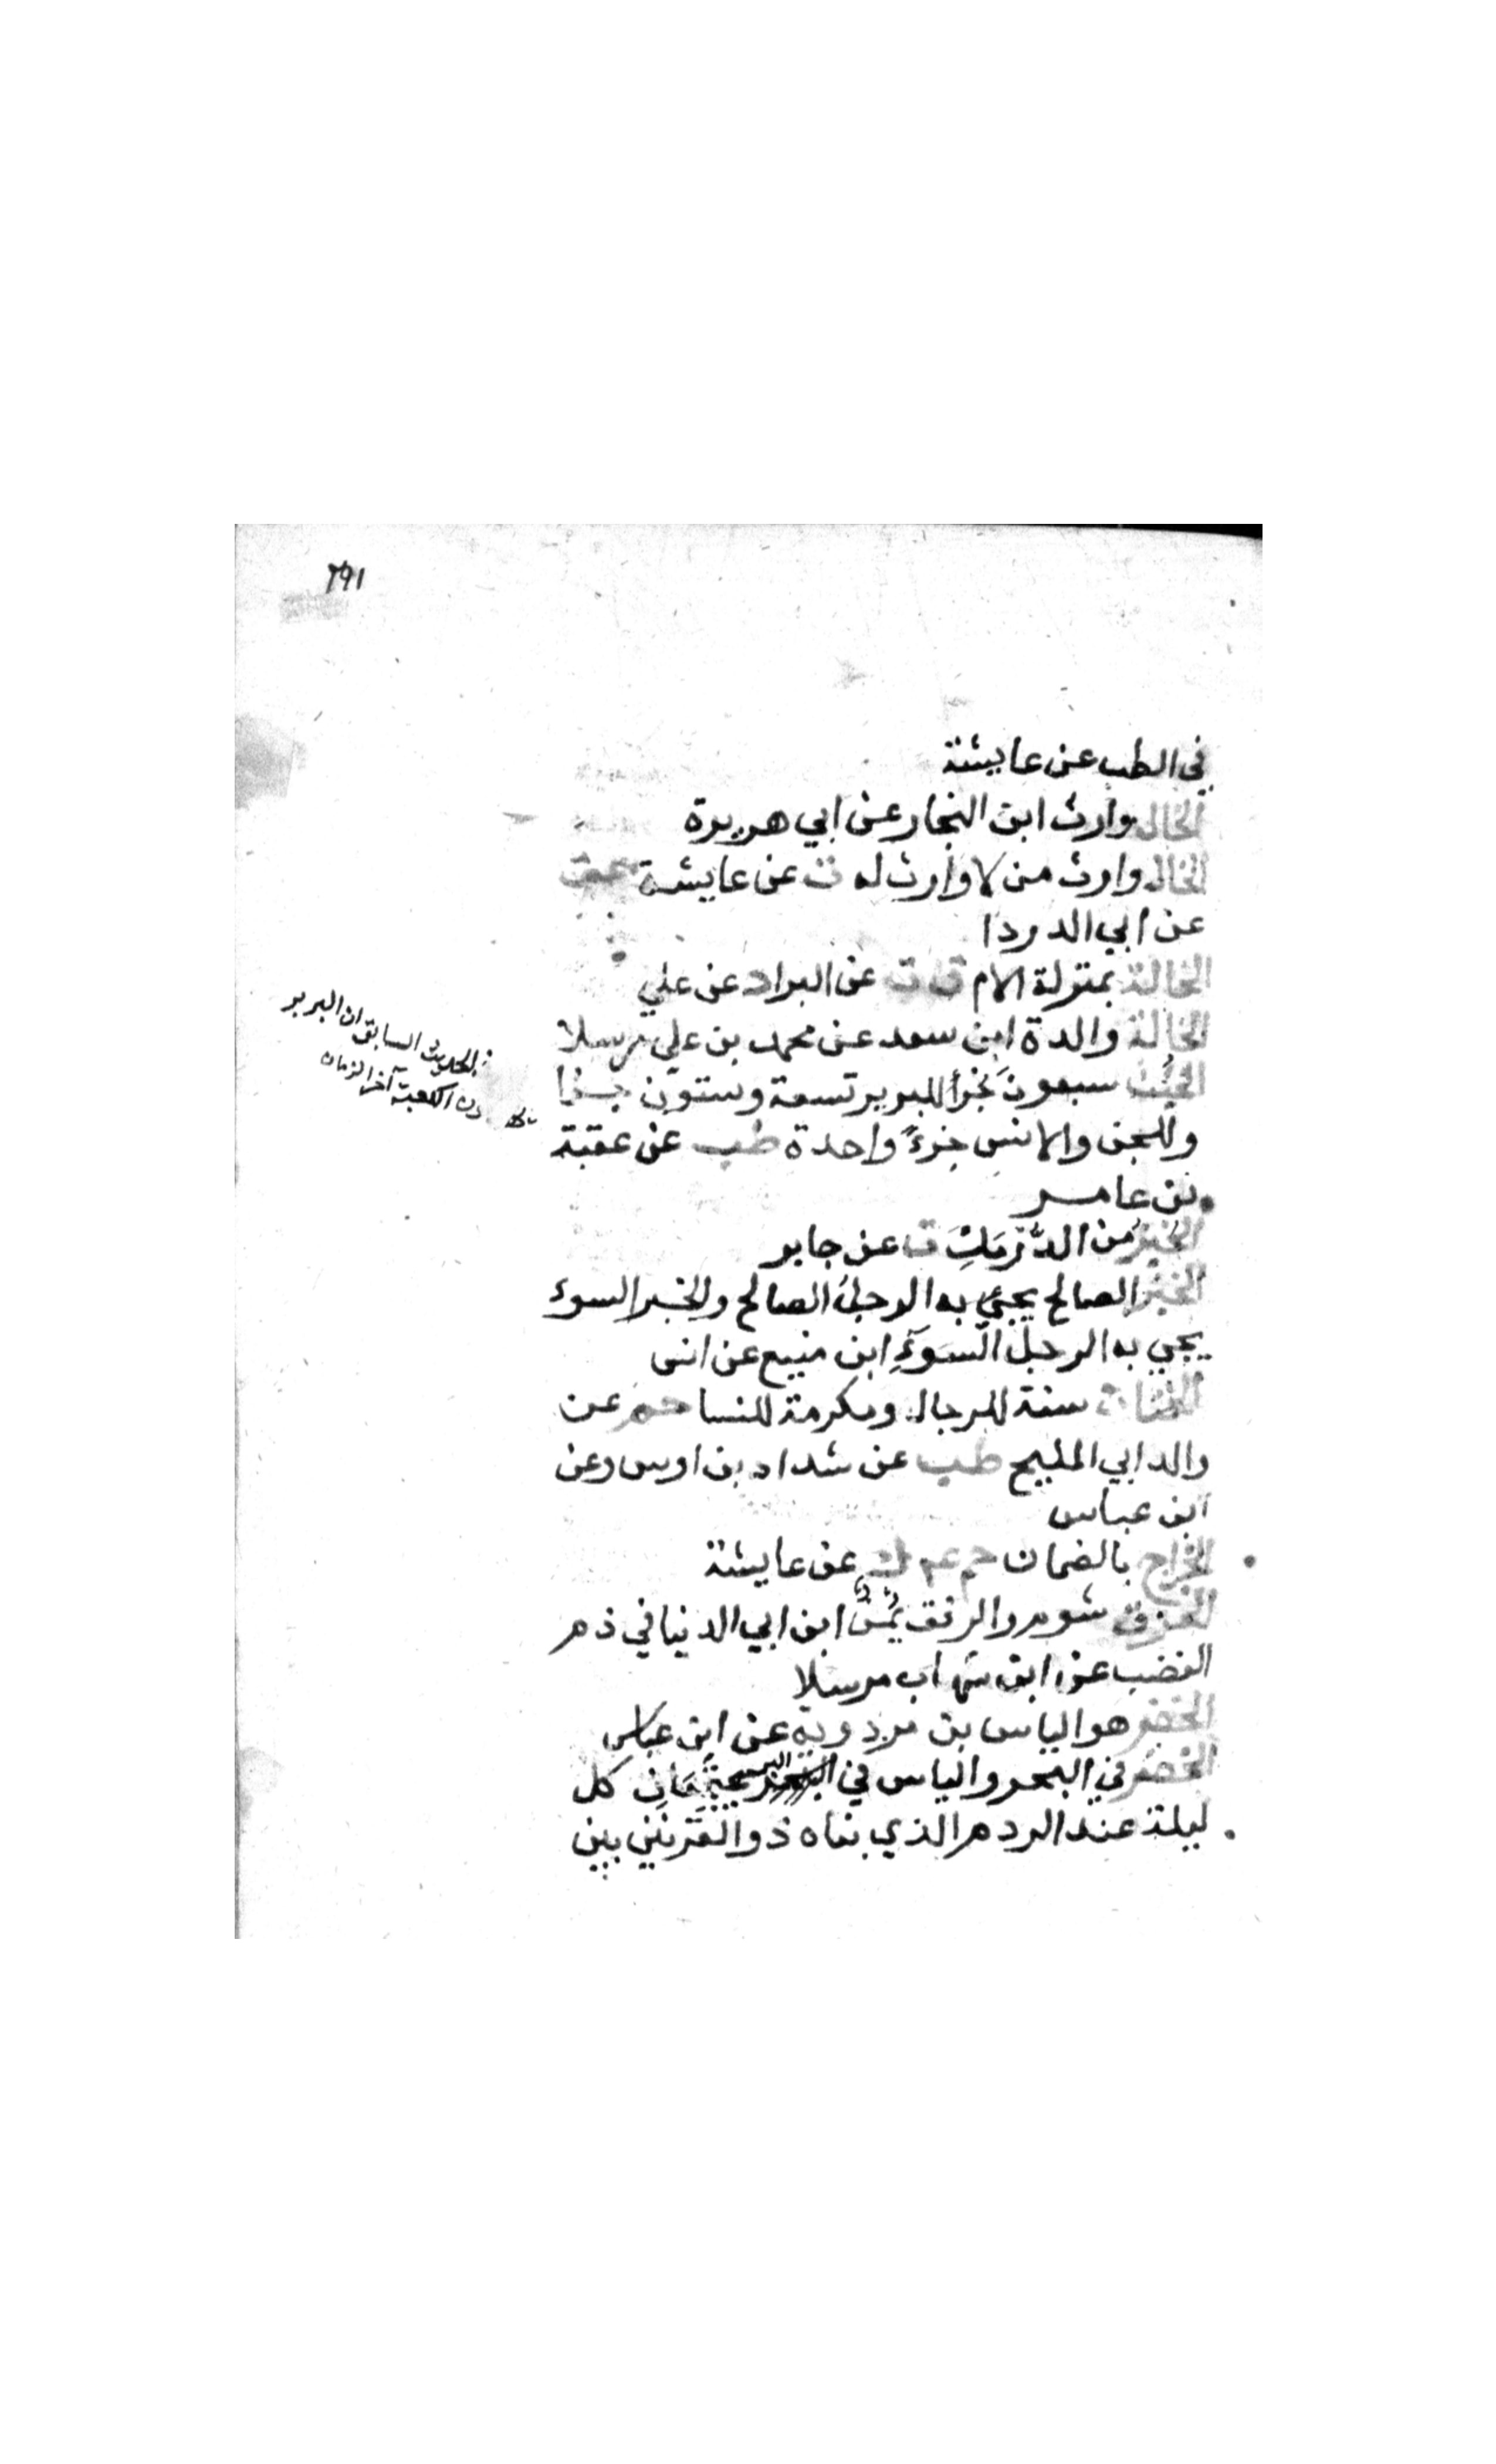 ٢٩١
في الطب عن عايشة
الخال وارث ابن النجار عن ابي هريرة
الخال وارث من لا وارث له ت عن عايشة عق
عن ابي الدردا
الخالة بمنزلة الام ق ت عن البراد عن علي
الخالة والدة ابن سعد عن محمد بن علي مرسلا
الخُبْث سبعون جُزأ للبربر تسعة وستون جزا
وللجن والانس جزءٌ واحدة طب عن عقبة
بن عامر
الخُبْزُ من الدَّرْمَكِ ت عن جابر
الخبر الصالح يجيُ به الرجلُ الصالح والخبر السوء
يجي به الرجل السَوَءِ ابن منيع عن انس
الختان سنة للرجال ومكرمة للنسا حم عن
والد ابي المليح طب عن شداد بن اوس وعن
ابن عباس
الخراج بالضمان حم عه ك عن عايشة
الخرق شوم والرفق يُمْنٌ ابن ابي الدنيا في ذم
الغضب عن ابن شهاب مرسلا
الخضر هو الياس بن مردويه عن ابن عباس
الخضر في البحر والياس في البر يجتمعان كل
ليلة عند الردم الذي بناه ذو القرنين بين
الحديث السابق ان البربر
الكعبة آخر الزمان